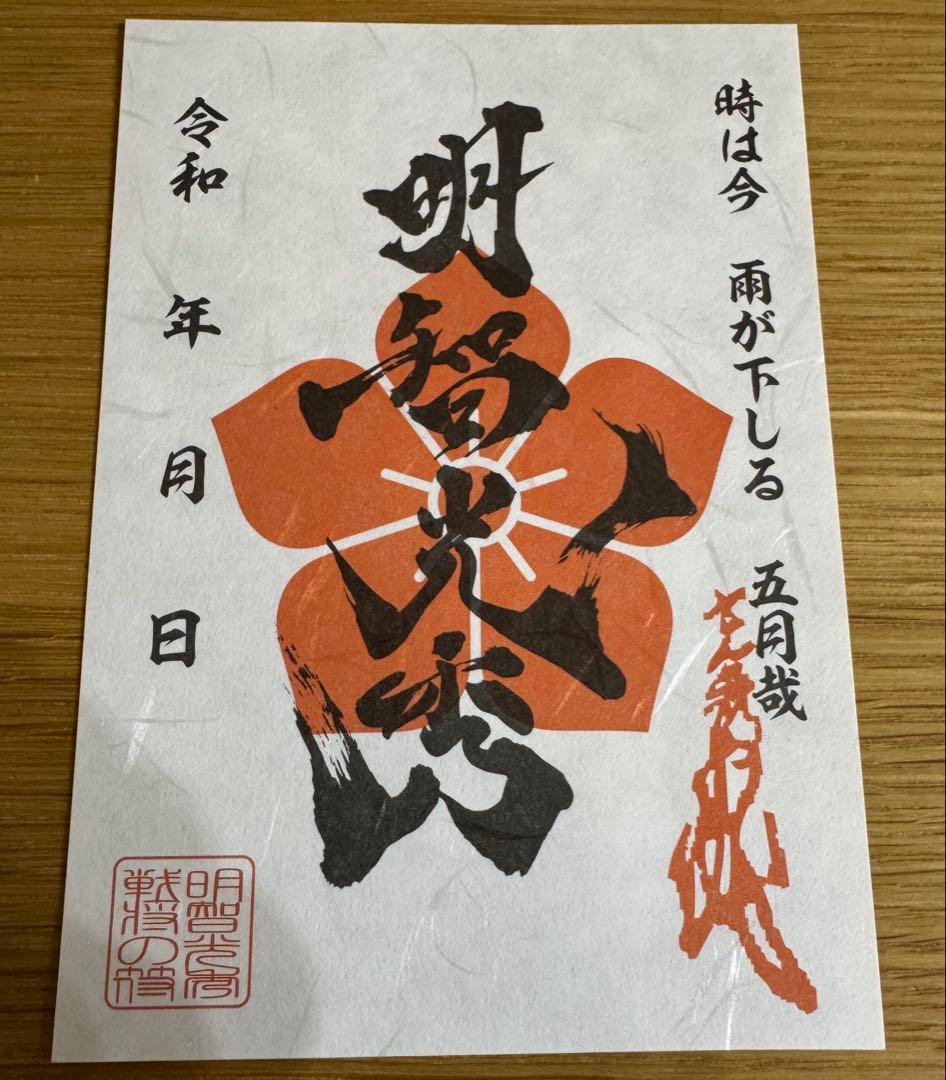 時は今 雨が下しる 五月哉
明智光秀
令和 年 月 日
明智光秀
戦将の符